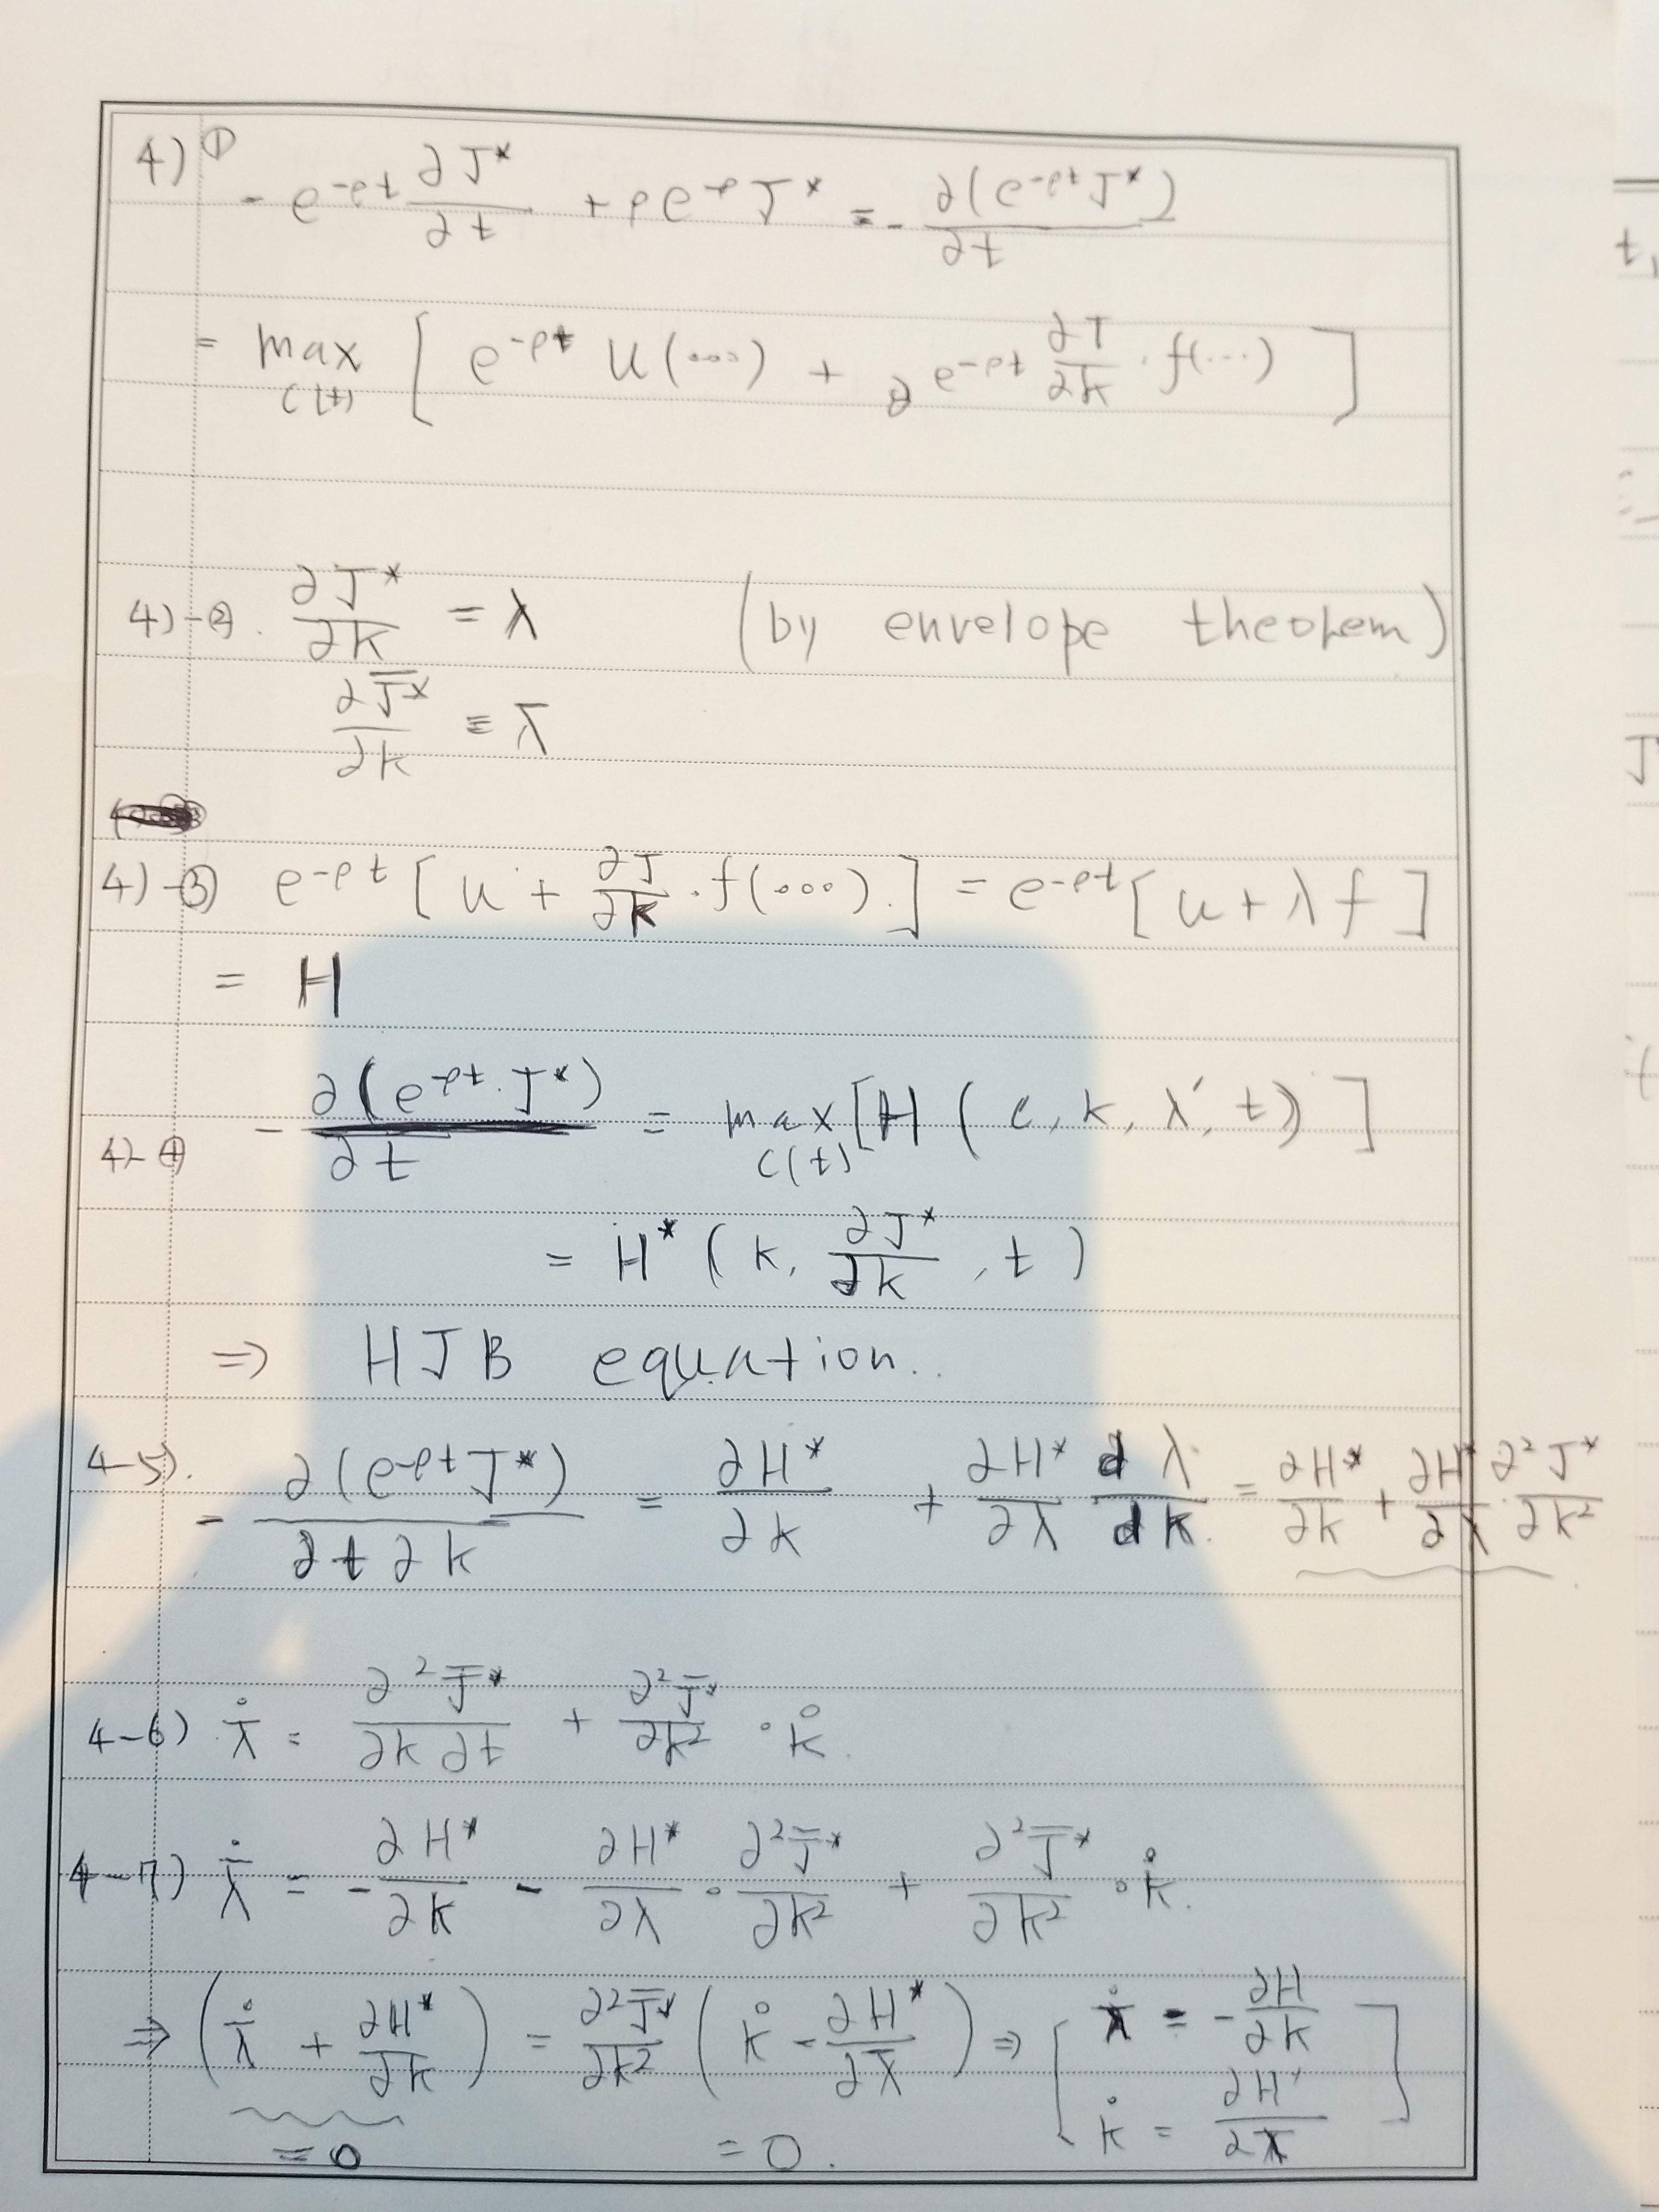 4) ① - e^{-ρt} ∂J*/∂t + ρe^{-ρ} J* = - ∂(e^{-ρt} J*)/∂t
= max_{c(t)} [ e^{-ρt} u(...) + e^{-ρt} ∂J/∂k · f(...) ]
4)-②. ∂J*/∂k = λ (by envelope theorem)
∂J̄*/∂k = λ̄
4)-③ e^{-ρt} [ u + ∂J/∂k · f(...) ] = e^{-ρt} [ u + λf ]
= H
4)-④ - ∂(e^{-ρt} · J*)/∂t = max_{c(t)} [ H ( c, k, λ, t) ]
= H* ( k, ∂J*/∂k, t )
⇒ HJB equation.
4-5). - ∂(e^{-ρt} J*)/∂t∂k = ∂H*/∂k + ∂H*/∂λ dλ/dk. = ∂H*/∂k + ∂H*/∂λ · ∂²J*/∂k²
4-6) λ̄̇ = ∂²J̄*/∂k∂t + ∂²J̄*/∂k² · k̇.
4-7) λ̄̇ = - ∂H*/∂k - ∂H*/∂λ · ∂²J̄*/∂k² + ∂²J̄*/∂k² · k̇.
⇒ ( λ̄̇ + ∂H*/∂k ) = ∂²J̄*/∂k² ( k̇ - ∂H*/∂λ̄ ) ⇒ [ λ̇ = - ∂H/∂k
k̇ = ∂H/∂λ̄ ]
= 0 = 0.